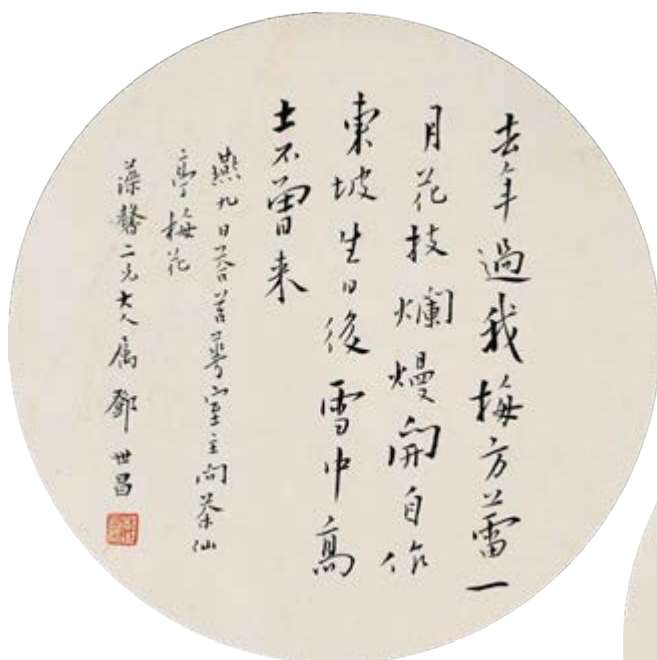 去年過我梅方蕾一
月花技爛熳開自作
東坡生日後雪中高
士不曾来
燕九日答苦萼室主问茶仙
亭梅花
藻馨二兄大人属鄧世昌